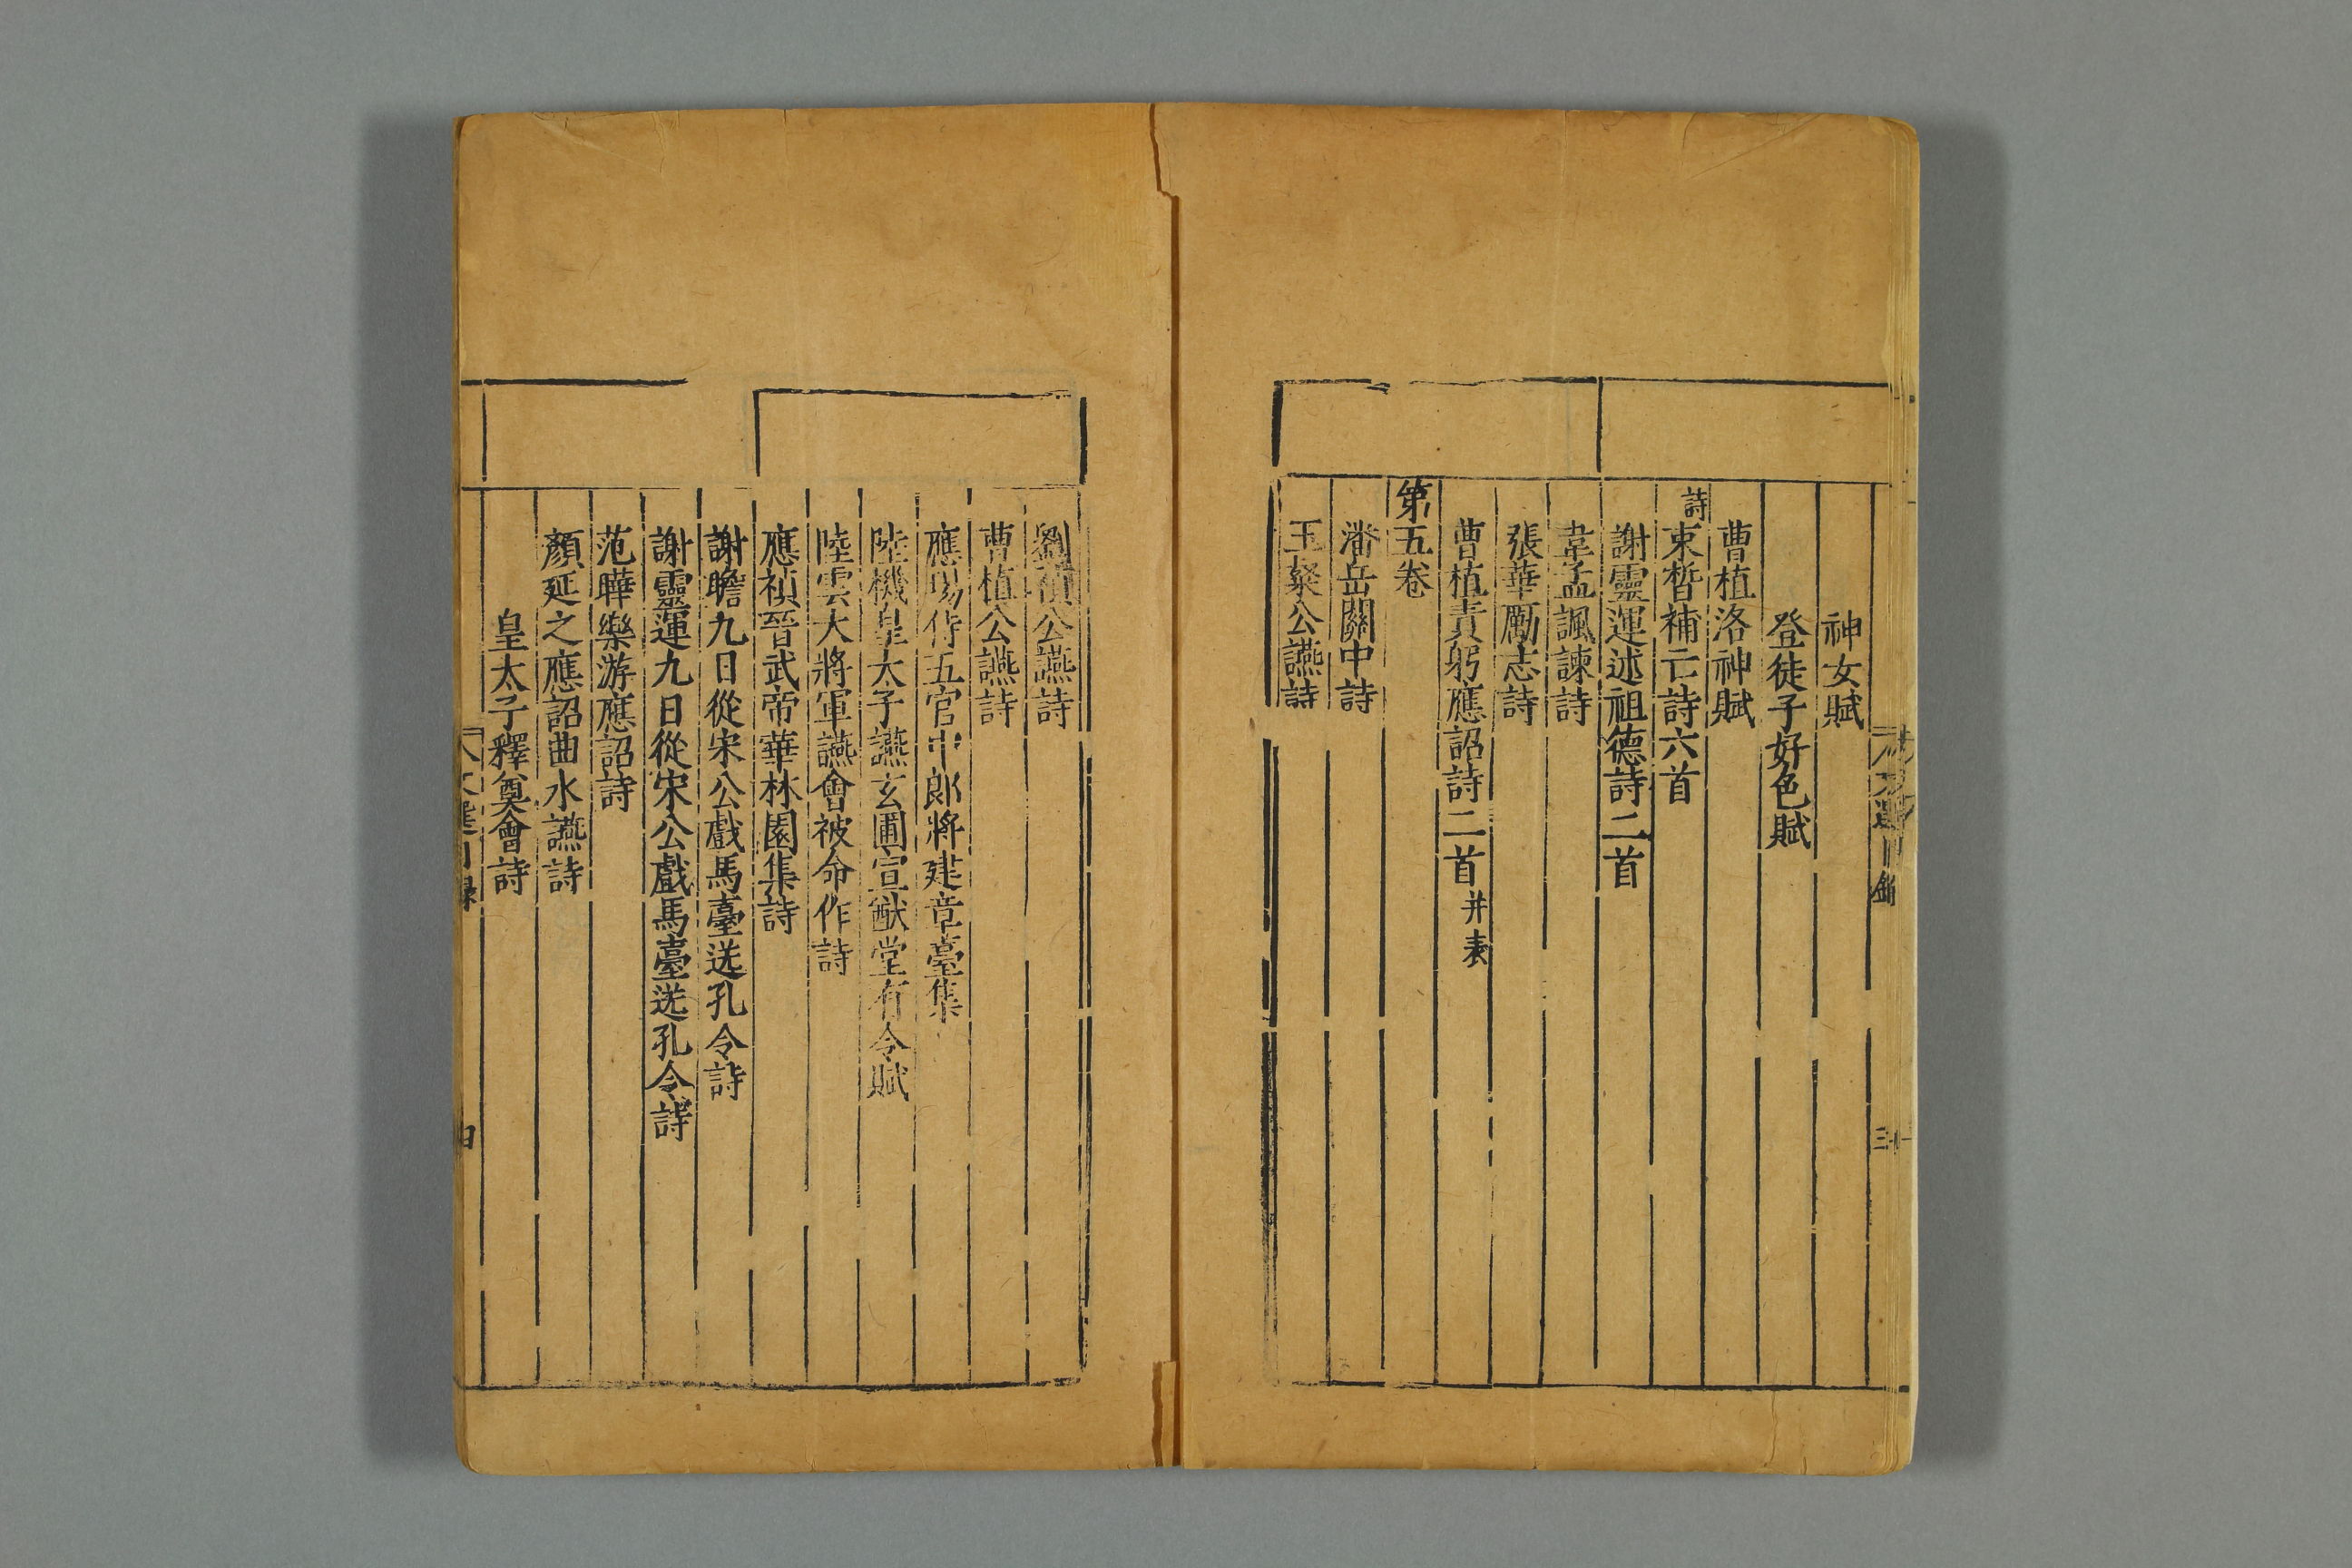 神女賦
登徒子好色賦
曹植洛神賦
詩
束晳補亡詩六首
謝靈運述祖德詩二首
韋孟諷諫詩
張華勵志詩
曹植責躬應詔詩二首并表
第五卷
潘岳關中詩
王粲公讌詩
劉楨公讌詩
曹植公讌詩
應瑒侍五官中郎將建章臺集
陸機皇太子讌玄圃宣猷堂有令賦
陸雲大將軍讌會被命作詩
應禎晉武帝華林園集詩
謝瞻九日從宋公戲馬臺送孔令詩
謝靈運九日從宋公戲馬臺送孔令詩
范曄樂游應詔詩
顏延之應詔曲水讌詩
皇太子釋奠會詩